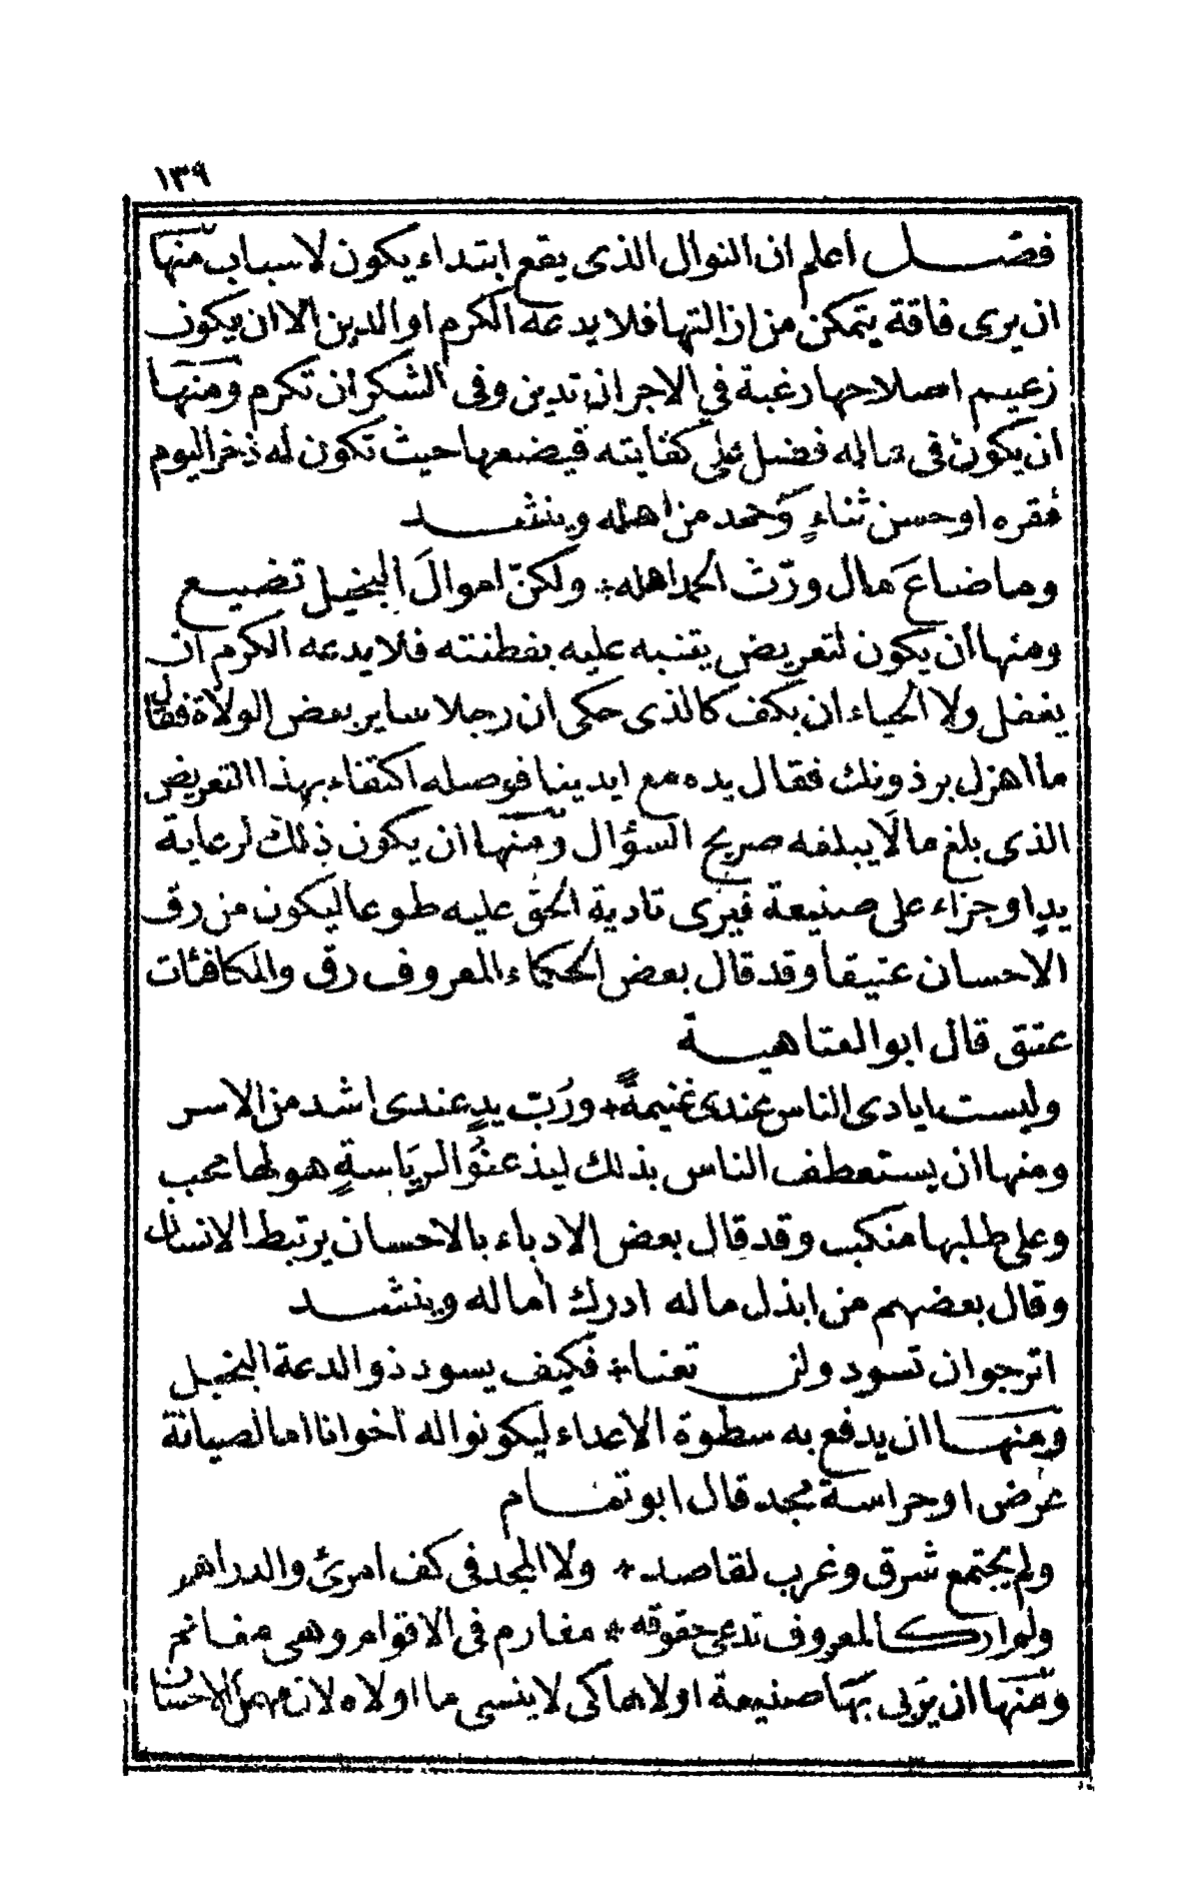 ١٣٩
فصل أعلم ان النوال الذى يقع ابتداء يكون لاسباب منها
ان يرى فاقة يتمكن من ازالتها فلا يدعه الكرم او الدين الا ان يكون
زعيم اصلاحها رغبة في الاجر ان تدين وفى الشكر ان تكرم ومنها
ان يكون فى ماله فضل على كفايته فيضعها حيث تكون له ذخر اليوم
فقره او حسن ثناءٍ وحمد من اهله وينشد
وما ضاعَ مال ورّث الحمد اهله * ولكنّ اموالَ البخيل تضيع
ومنها أن يكون لتعريض يتنبه عليه بفطنته فلا يدعه الكرم ان
يغفل ولا الحياء ان يكف كالذى حكى ان رجلا ساير بعض الولاة فقال
ما اهزل برذونك فقال يده مع ايدينا فوصله اكتفاء بهذا التعريض
الذى بلغ مالَا يبلغه صريح السؤال ومنها ان يكون ذلك لرعاية
يدٍ او جزاء على صنيعة فيرى تادية الحق عليه طوعا ليكون من رق
الاحسان عتيقا وقد قال بعض الحكماء المعروف رق والمكافئات
عتق قال ابو العتاهية
وليست ايادى الناس عندى غنيمةً * ورُبّ يدٍ عندى اشد من الاسر
ومنها ان يستعطف الناس بذلك ليذعنوُا لرِيَاسةٍ هو لها محب
وعلى طلبها منكب وقد قال بعض الادباء بالاحسان يرتبط الانسان
وقال بعضهم من ابذل ماله ادرك أماله وينشد
اترجو ان تسود ولن تعنا * فكيف يسود ذو الدعة البخيل
ومنها ان يدفع به سطوة الاعداء ليكونوا له أخوانا اما لصيانة
عرض او حراسة مجد قال ابو تمام
ولم يجتمع شرق وغرب لقاصد * ولا المجد فى كف امرئ والدراهم
ولم ار كالمعروف تدعى حقوقه * مغارم فى الاقوام وهى مغانم
ومنها ان يربى بها صنيعة اولاها كى لا ينسى ما اولاه لان مهمل الاحسان